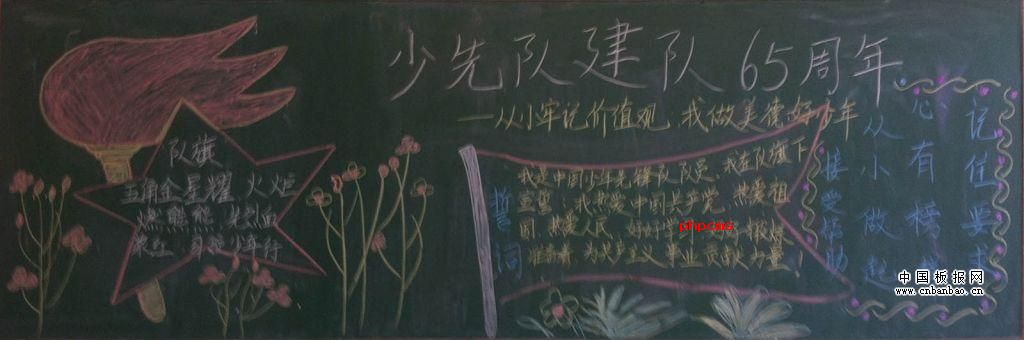 少先队建队65周年
——从小牢记价值观 我做美德好少年
队旗
五角金星耀 火炬
燃熊熊
誓词
我是中国少年先锋队队员。我在队旗下
宣誓：我热爱中国共产党，热爱祖
国，热爱人民，好好
phpcms
准备着，为共产主义事业贡献力量！
记住要求
心有榜样
从小做起
接受帮助
中国板报网
www.cnbanbao.cn